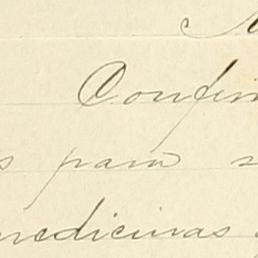 Confir
s para
medicinas